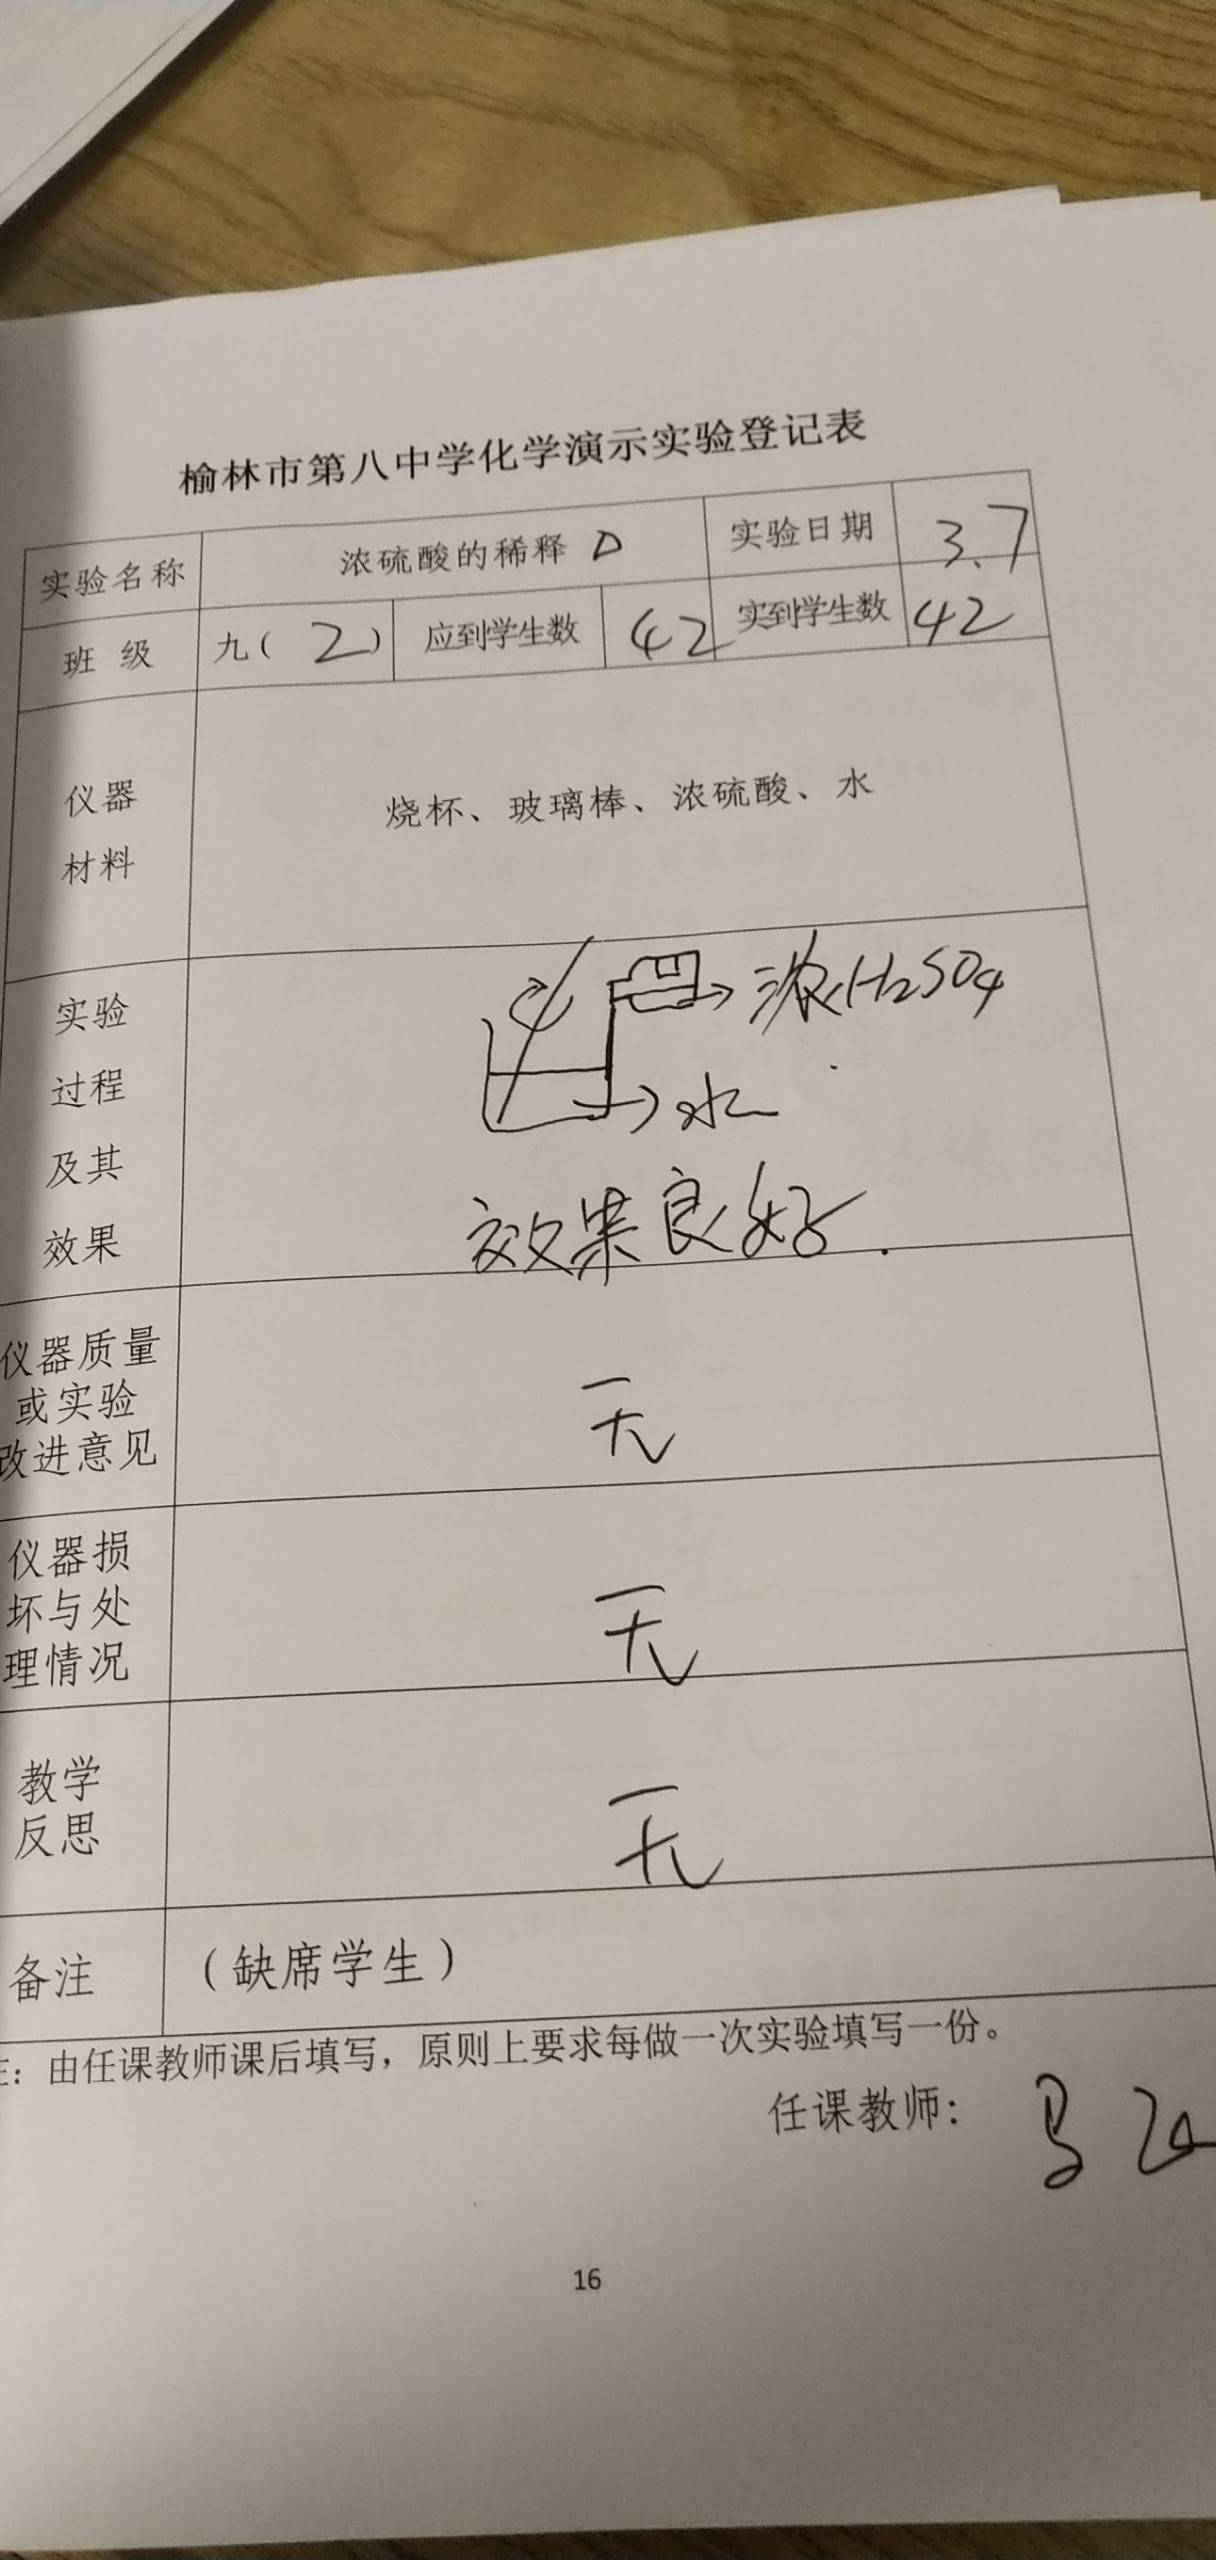 榆林市第八中学化学演示实验登记表
实验名称 浓硫酸的稀释 实验日期 3.7
班 级 九(2) 应到学生数 42 实到学生数 42
仪器
材料
烧杯、玻璃棒、浓硫酸、水
实验
过程
及其
效果
浓H₂SO₄
水
效果良好.
仪器质量
或实验
改进意见
无
仪器损
坏与处
理情况
无
教学
反思
无
备注 (缺席学生)
注：由任课教师课后填写，原则上要求每做一次实验填写一份。
任课教师: 马
16